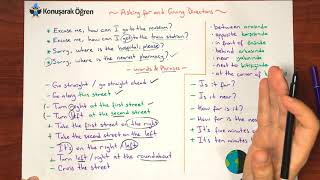 Konuşarak Öğren
Asking for and Giving Directions
Excuse me, how can I go to the museum?
Excuse me, how can I get to the train station?
Sorry, where is the hospital please?
Sorry, where is the nearest pharmacy?
Words & Phrases
Go straight / go straight ahead
Go along this street
Turn right at the first street
Turn left at the second street
Take the first street on the right
Take the second street on the left
It's on the right / left
Turn left / right at the roundabout
Cross the street
between
opposite
in front of
behind
near
next to
at the corner of
Is it far?
Is it near?
How far is it?
How far is the
It's five minutes
It's ten minutes